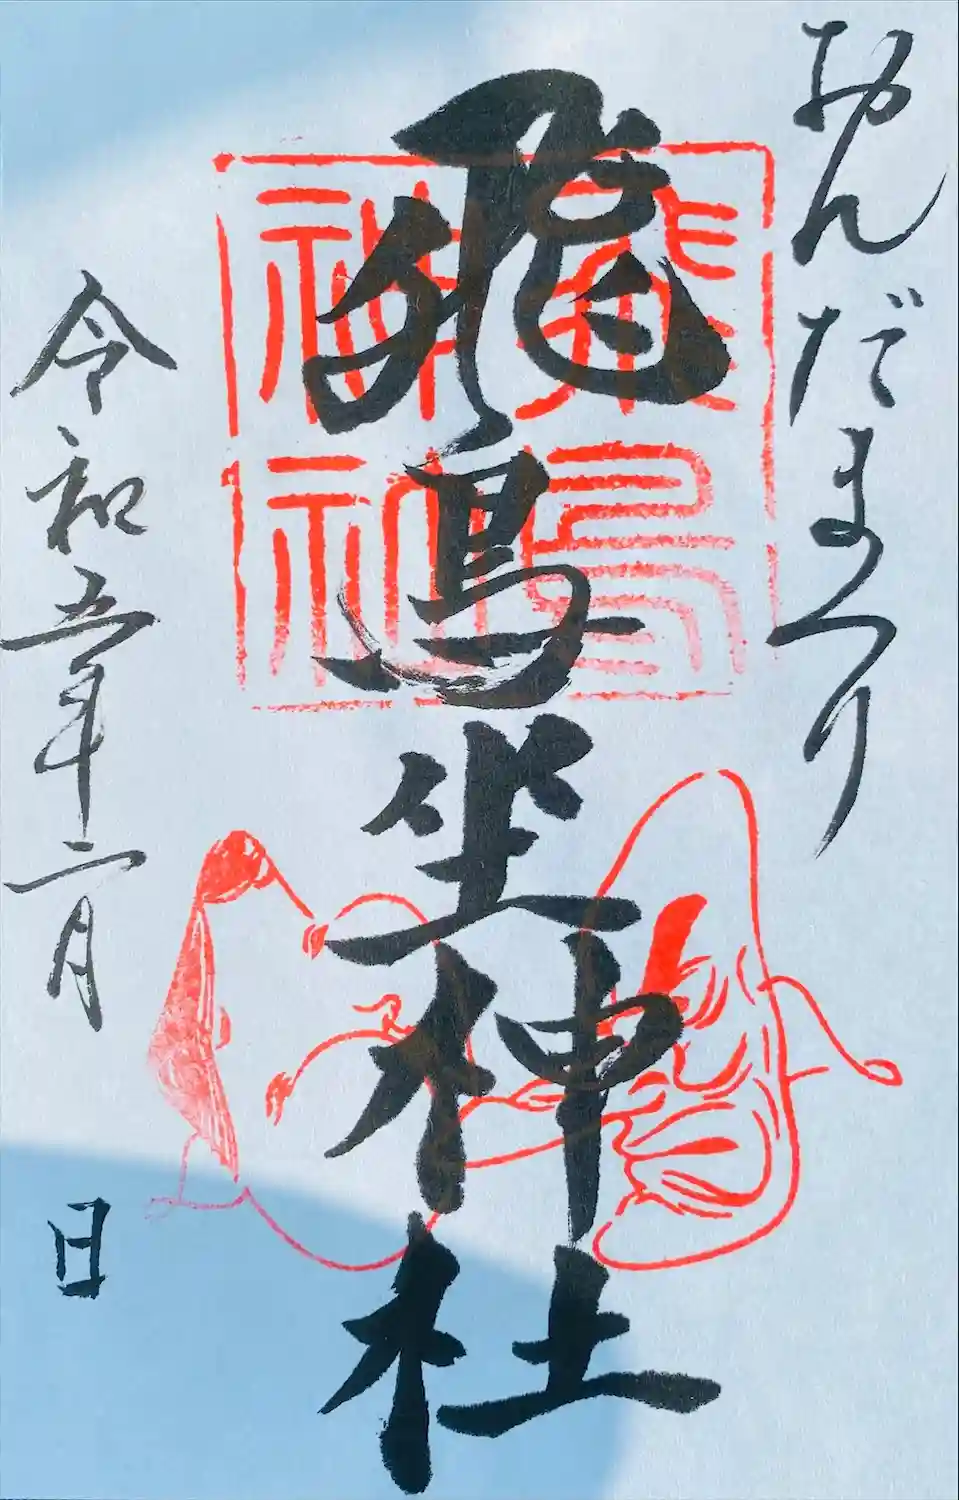 おんだまつり
飛鳥坐神社
飛鳥
神社
令和五年二月
日